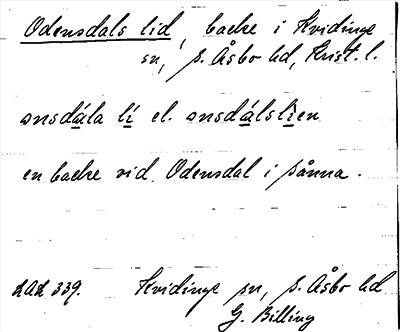 Odensdals lid, backe i Kvidinge
sn, S. Åsbo hd, Krist. l.
onsdála lí el. onsdálslìen
en backe vid Odensdal i sånna.
LAL 339. Kvidinge sn, S. Åsbo hd
G. Billing